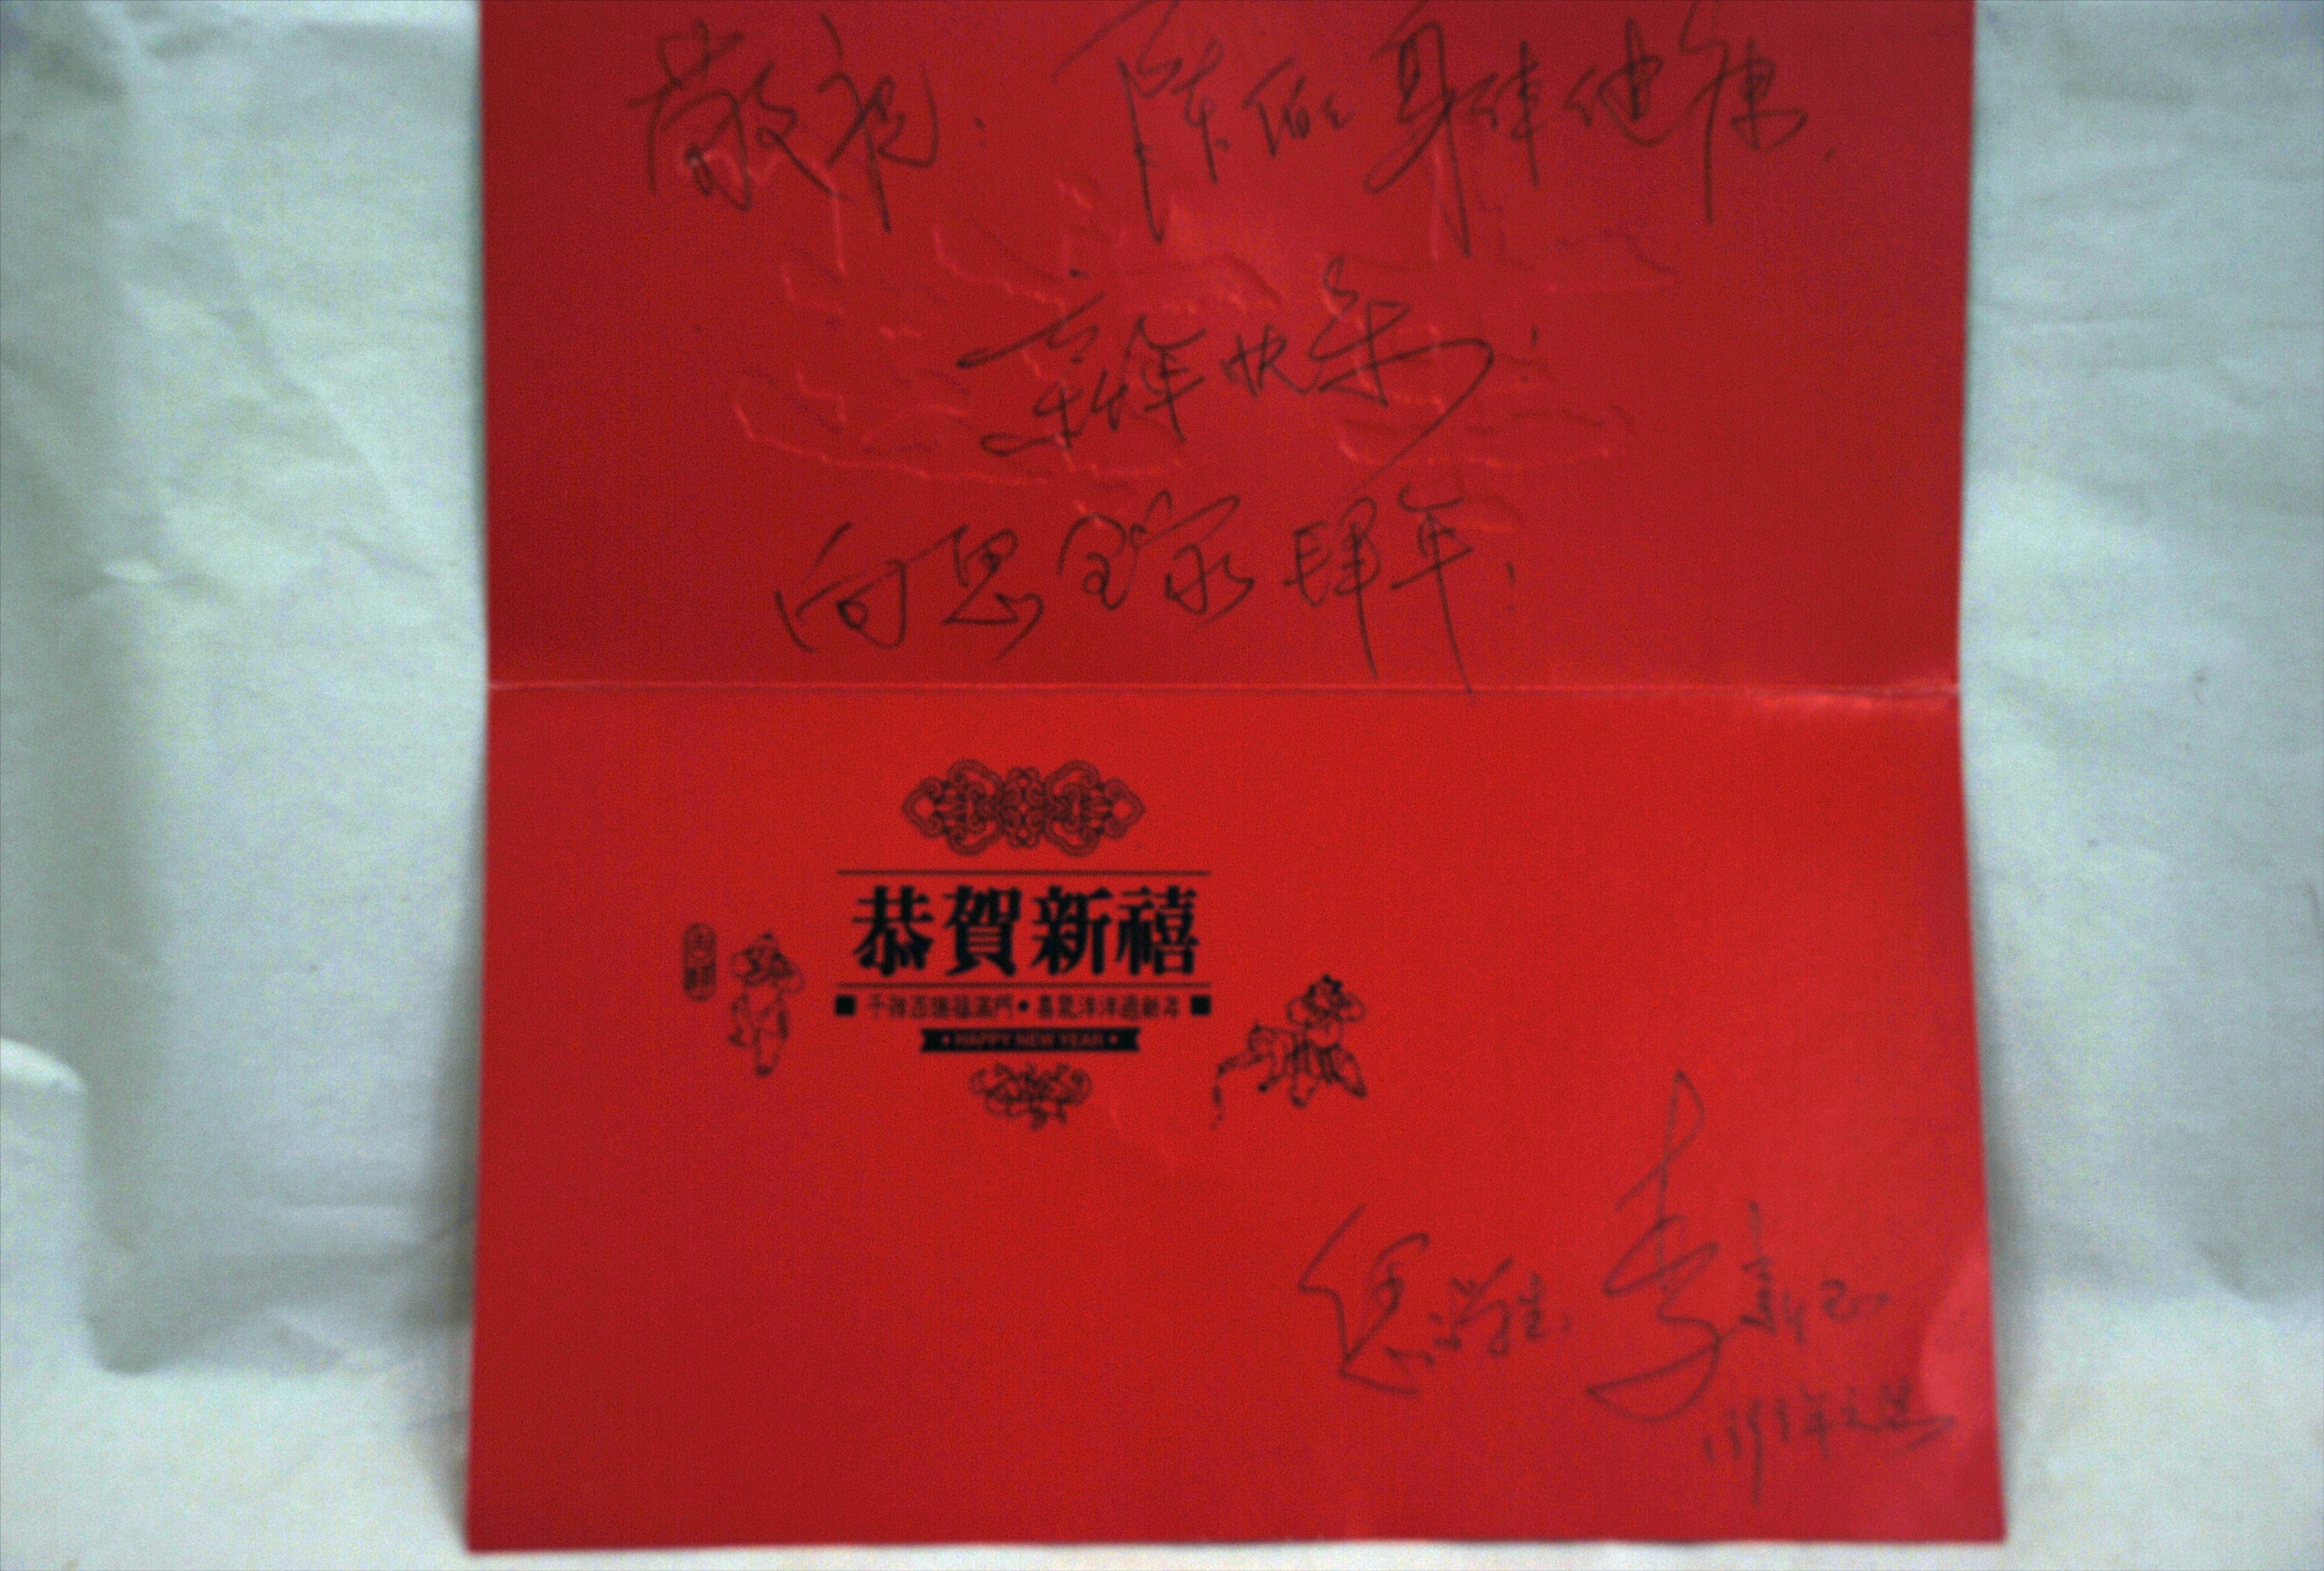 敬祝：陈伯身体健康，
新年快乐！
向恩全家拜年！
恭賀新禧
千祥百瑞福滿門•喜氣洋洋過新年
• HAPPY NEW YEAR •
学生：李
年元旦